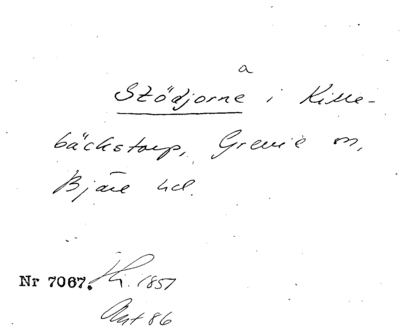 a
Stödjorne i Kille-
bäckstorp, Grevie sn,
Bjäre hd.
Nr 7067. 1857
Ant 86